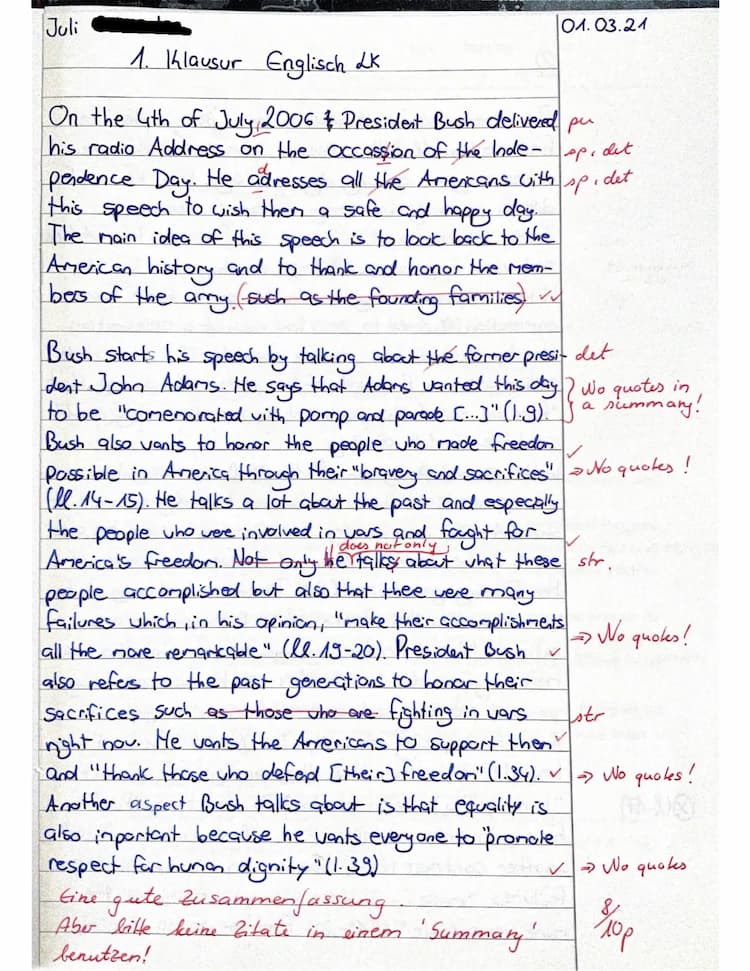 Juli 01.03.21
1. Klausur Englisch LK
On the 4th of July, 2006 President Bush delivered pu
his radio Address on the occassion of the Inde- sp, det
pendence Day. He adresses all the Americans with sp, det
d
this speech to wish them a safe and happy day.
The main idea of this speech is to look back to the
American history and to thank and honor the mem-
bers of the army. (such as the founding families) ✓✓
Bush starts his speech by talking about the former presi- det
dent John Adams. He says that Adams wanted this day } No quotes in
to be "comenorated with pomp and parade [...]" (l.9). a summary!
Bush also wants to honor the people who made freedom ✓
possible in America through their "bravery and sacrifices" ⇒ No quotes!
(ll.14-15). He talks a lot about the past and especially
the people who were involved in wars and fought for ✓
does not only
America's freedom. Not only he talks about what these str.
people accomplished but also that thee were many
failures which, in his opinion, "make their accomplishments ⇒ No quotes!
all the more remarkable" (ll.19-20). President Bush ✓
also refers to the past generations to honor their
sacrifices such as those who are fighting in wars str
right now. He wants the Americans to support them ✓
and "thank those who defend [their] freedom" (l.34). ✓ ⇒ No quotes!
Another aspect Bush talks about is that equality is
also important because he wants everyone to "promote
respect for human dignity" (l.39) ✓ ⇒ No quotes
Eine gute Zusammenfassung. 8/10p
Aber bitte keine Zitate in einem 'Summary'
benutzen!